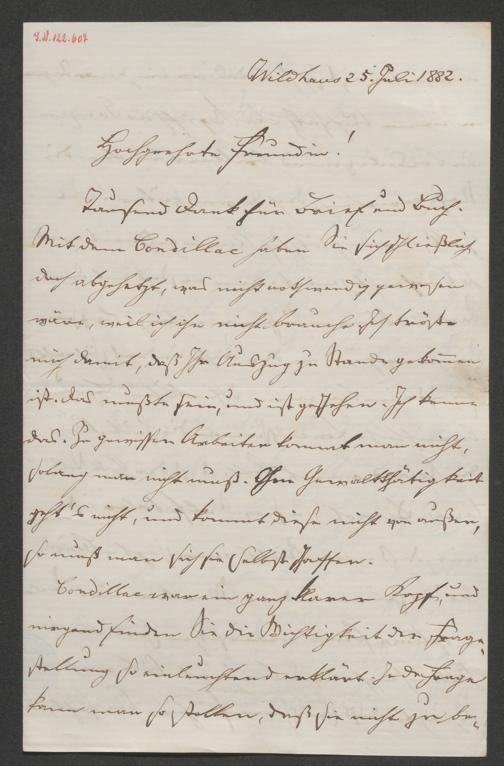 I.N. 122.607
Wildhaus 25. Juli 1882.
Hochgeehrte Freundin!
Tausend Dank für Brief und Buch.
Mit dem Condillac haben Sie sich schließlich
doch abgehetzt, was nicht nothwendig gewesen
wäre, weil ich ihn nicht brauche. Ich tröste
mich damit, daß Ihr Auszug zu Stande gekommen
ist. Das mußte sein, und ist geschehen. Ich kenne
das. Zu gewissen Arbeiten kommt man nicht,
solang man nicht muß. Ohne Gewaltthätigkeit
geht's nicht, und kommt diese nicht von außen,
so muß man sich sie selbst schaffen.
Condillac war ein ganz klarer Kopf, und
nirgend finden Sie die Wichtigkeit der Frage-
stellung so einleuchtend erklärt. Jede Frage
kann man so stellen, daß sie nicht zu be-